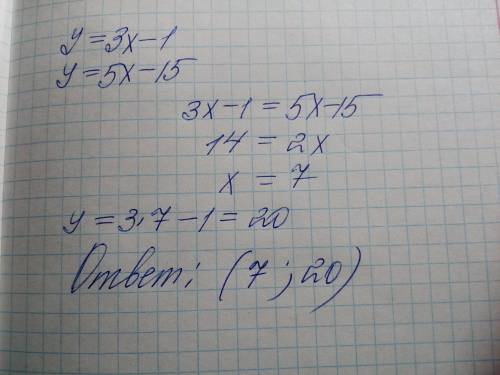 y = 3x - 1
y = 5x - 15
3x - 1 = 5x - 15
14 = 2x
x = 7
y = 3·7 - 1 = 20
Ответ: (7; 20)